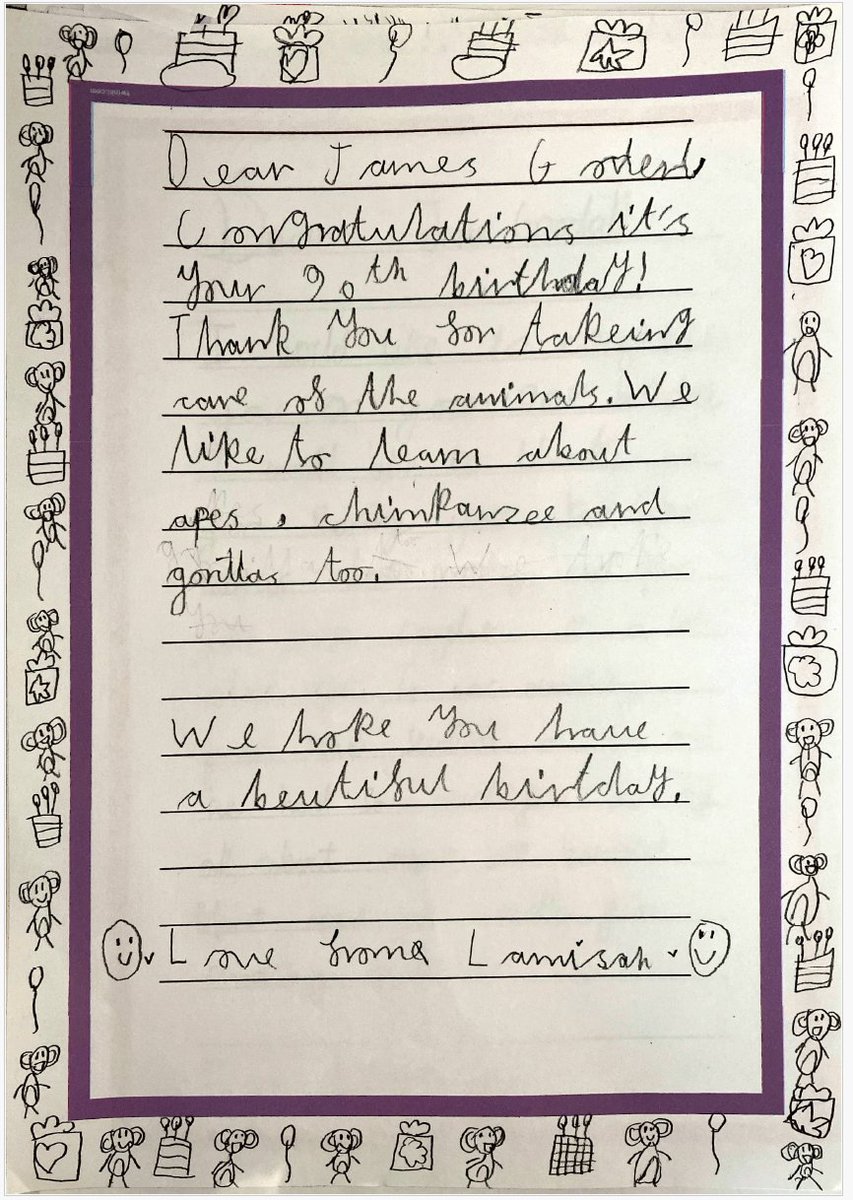 twinkl.com
Dear James
Congratulations it's
your 90th birthday!
Thank you for takeing
care of the animals. We
like to learn about
apes, chimpanzee and
gorillas too.
We hope you have
a beutiful birtday.
Love from Lamisah